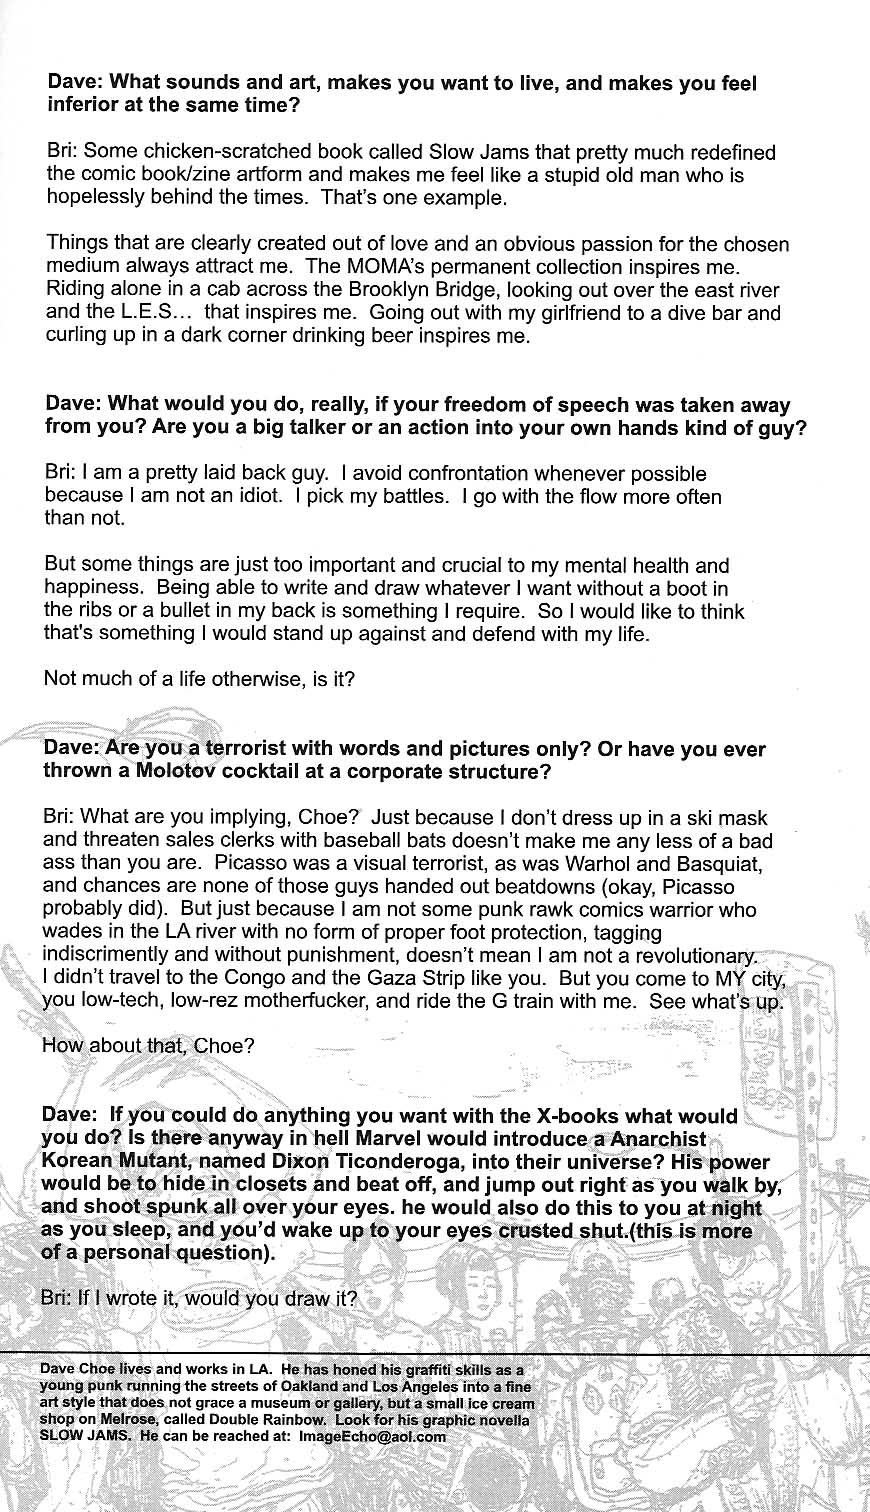 Dave: What sounds and art, makes you want to live, and makes you feel
inferior at the same time?
Bri: Some chicken-scratched book called Slow Jams that pretty much redefined
the comic book/zine artform and makes me feel like a stupid old man who is
hopelessly behind the times.  That's one example.
Things that are clearly created out of love and an obvious passion for the chosen
medium always attract me.  The MOMA's permanent collection inspires me.
Riding alone in a cab across the Brooklyn Bridge, looking out over the east river
and the L.E.S...  that inspires me.  Going out with my girlfriend to a dive bar and
curling up in a dark corner drinking beer inspires me.
Dave: What would you do, really, if your freedom of speech was taken away
from you? Are you a big talker or an action into your own hands kind of guy?
Bri: I am a pretty laid back guy.  I avoid confrontation whenever possible
because I am not an idiot.  I pick my battles.  I go with the flow more often
than not.
But some things are just too important and crucial to my mental health and
happiness.  Being able to write and draw whatever I want without a boot in
the ribs or a bullet in my back is something I require.  So I would like to think
that's something I would stand up against and defend with my life.
Not much of a life otherwise, is it?
Dave: Are you a terrorist with words and pictures only? Or have you ever
thrown a Molotov cocktail at a corporate structure?
Bri: What are you implying, Choe?  Just because I don't dress up in a ski mask
and threaten sales clerks with baseball bats doesn't make me any less of a bad
ass than you are.  Picasso was a visual terrorist, as was Warhol and Basquiat,
and chances are none of those guys handed out beatdowns (okay, Picasso
probably did).  But just because I am not some punk rawk comics warrior who
wades in the LA river with no form of proper foot protection, tagging
indiscrimently and without punishment, doesn't mean I am not a revolutionary.
I didn't travel to the Congo and the Gaza Strip like you.  But you come to MY city,
you low-tech, low-rez motherfucker, and ride the G train with me.  See what's up.
How about that, Choe?
Dave:  If you could do anything you want with the X-books what would
you do? Is there anyway in hell Marvel would introduce a Anarchist
Korean Mutant, named Dixon Ticonderoga, into their universe? His power
would be to hide in closets and beat off, and jump out right as you walk by,
and shoot spunk all over your eyes. he would also do this to you at night
as you sleep, and you'd wake up to your eyes crusted shut.(this is more
of a personal question).
Bri: If I wrote it, would you draw it?
Dave Choe lives and works in LA.  He has honed his graffiti skills as a
young punk running the streets of Oakland and Los Angeles into a fine
art style that does not grace a museum or gallery, but a small ice cream
shop on Melrose, called Double Rainbow.  Look for his graphic novella
SLOW JAMS.  He can be reached at:  ImageEcho@aol.com